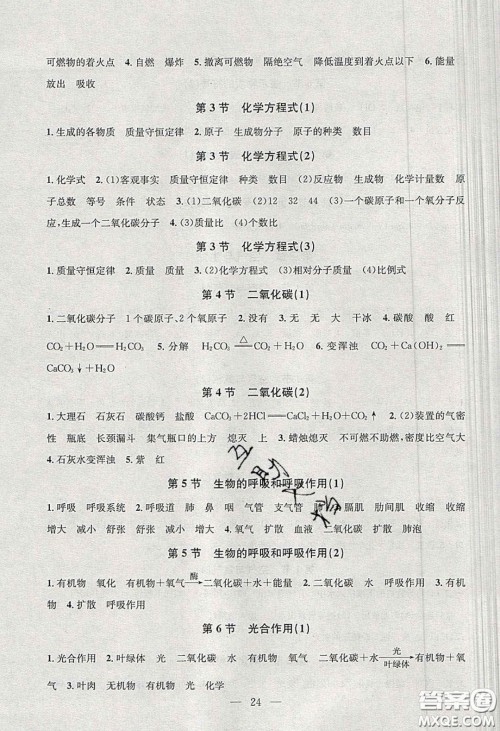 可燃物的着火点 4. 自燃 爆炸 5. 撤离可燃物 隔绝空气 降低温度到着火点以下 6. 能量
放出 吸收
第3节 化学方程式(1)
1. 生成的各物质 质量守恒定律 2. 原子 生成物分子 原子的种类 数目
第3节 化学方程式(2)
1. 化学式 2. (1)客观事实 质量守恒定律 种类 数目 (2)反应物 生成物 化学计量数 原
子总数 等号 条件 状态 3. (1)二氧化碳 (2)12 32 44 (3)一个碳原子和一个氧分子反
应,生成一个二氧化碳分子 4. (3)质量比 (4)个数比
第3节 化学方程式(3)
1. 质量守恒定律 2. 质量 3. (2)化学方程式 (3)相对分子质量 (4)比例式
第4节 二氧化碳(1)
1. 二氧化碳分子 1个碳原子、2个氧原子 2. 没有 3. 无 无 大 干冰 4. 碳酸 酸 红
CO₂+H₂O══H₂CO₃ 5. 分解 H₂CO₃══△CO₂↑+H₂O 6. 变浑浊 CO₂+Ca(OH)₂══
CaCO₃↓+H₂O
第4节 二氧化碳(2)
1. 大理石 石灰石 碳酸钙 盐酸 CaCO₃+2HCl══CaCl₂+H₂O+CO₂↑ 2. (2)装置的气密
性 瓶底 长颈漏斗 集气瓶口的上方 熄灭 上 3. 蜡烛熄灭 不可燃 不能助燃,密度比空气大
4. 石灰水变浑浊 5. 紫 红
第5节 生物的呼吸和呼吸作用(1)
1. 呼吸 呼吸系统 2. 呼吸道 肺 鼻 咽 气管 支气管 3. 肋骨 膈肌 肋间肌 收缩 收缩
增大 减小 舒张 舒张 减小 增大 4. 氧气 扩散 血液 二氧化碳 扩散 肺泡
第5节 生物的呼吸和呼吸作用(2)
1. 有机物 氧化 有机物+氧气酶→二氧化碳+水+能量 2. 二氧化碳 水 呼吸作用 3. 有机
物 4. 扩散 呼吸作用
第6节 光合作用(1)
1. 光合作用 2. 叶绿体 光 二氧化碳 水 有机物 氧气 二氧化碳+水光→叶绿体有机物+
氧气 3. 叶肉 无机物 有机物 光 化学
— 24 —
互助文档
作业精灵
MXQE.COM